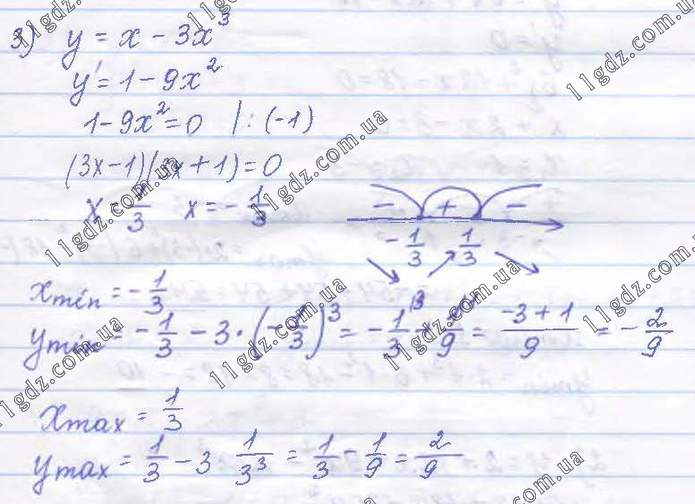 3) y = x - 3x³
y' = 1 - 9x²
1 - 9x² = 0 | : (-1)
(3x - 1)(3x + 1) = 0
x = 1/3 x = - 1/3
- + -
- 1/3 1/3
xmin = - 1/3
ymin = - 1/3 - 3 · (- 1/3)³ = - 1/3 + 1/9 = (-3 + 1)/9 = - 2/9
xmax = 1/3
ymax = 1/3 - 3 1/3³ = 1/3 - 1/9 = 2/9
11gdz.com.ua
11gdz.com.ua
11gdz.com.ua
11gdz.com.ua
11gdz.com.ua
11gdz.com.ua
11gdz.com.ua
11gdz.com.ua
11gdz.com.ua
11gdz.com.ua